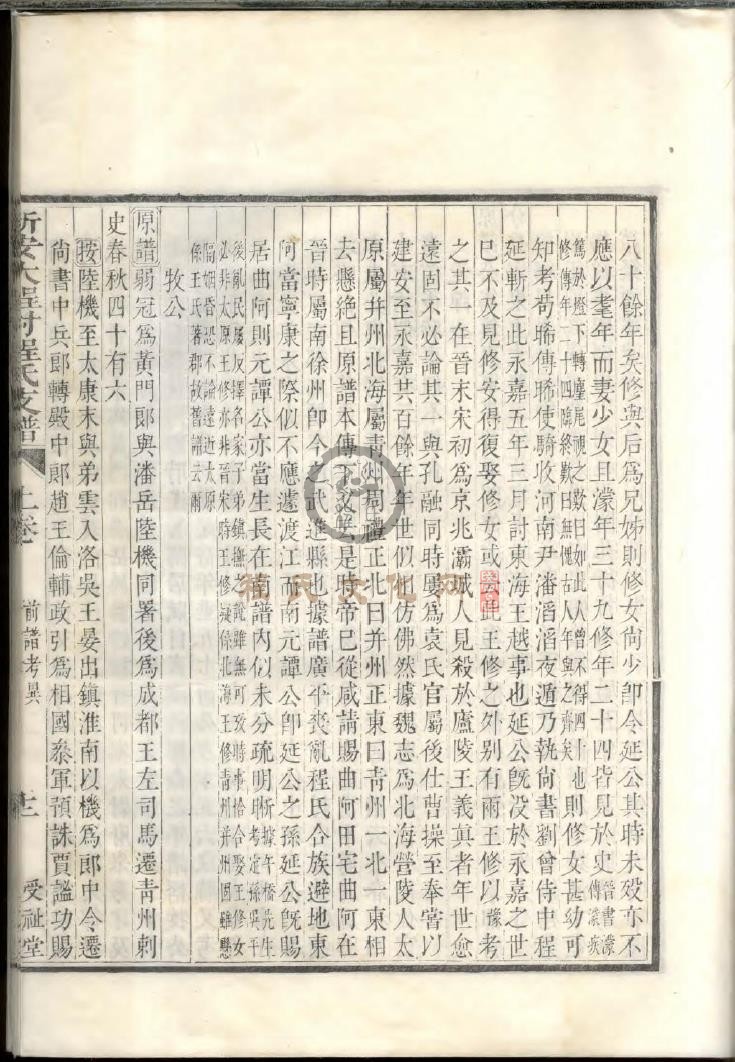 八十餘年矣修與后爲兄姊則修女尙少卽令延公其時未歿亦不
應以耄年而妻少女且濛年三十九修年二十四皆見於史晉書濛傳濛疾
篤於燈下轉麈尾視之歎曰如此人曾不得四十也
修傳年二十四臨終歎曰無愧古人年與之齊矣則修女甚幼可
知考荀晞傳晞使騎收河南尹潘滔滔夜遁乃執尙書劉曾侍中程
延斬之此永嘉五年三月討東海王越事也延公旣没於永嘉之世
已不及見修安得復娶修女或此王修之外別有兩王修以豫考
之其一在晉末宋初爲京兆灞城人見殺於廬陵王義眞者年世愈
遠固不必論其一與孔融同時屢爲袁氏官屬後仕曹操至奉嘗以
建安至永嘉共百餘年年世似仿佛然據魏志爲北海營陵人太
原屬并州北海屬靑州周禮正北曰并州正東曰靑州一北一東相
去懸絶且原譜本傳下文云是時帝已從咸請賜曲阿田宅曲阿在
晉時屬南徐州卽今之武進縣也據譜廣平喪亂程氏合族避地東
阿當寧康之際似不應遽渡江而南元譚公卽延公之孫延公旣賜
居曲阿則元譚公亦當生長在南譜内似未分疏明晰據午橋先生考定孫吳平
後亂民屢反擇名家子弟鎮撫之說雖無可攷時事恰合娶王修女
必非太原王修亦非晉宋時王修疑係北海王修靑州并州國雖懸
隔婚昏恐不論遠近太原
係王氏著郡故舊譜云爾
牧公
原譜弱冠爲黃門郎與潘岳陸機同署後爲成都王左司馬遷靑州刺
史春秋四十有六
按陸機至太康末與弟雲入洛吳王晏出鎮淮南以機爲郎中令遷
尙書中兵郎轉殿中郎趙王倫輔政引爲相國叅軍預誅賈謐功賜
新安大程村程氏支譜 上卷 前譜考異 十二 受祉堂
程氏文化网